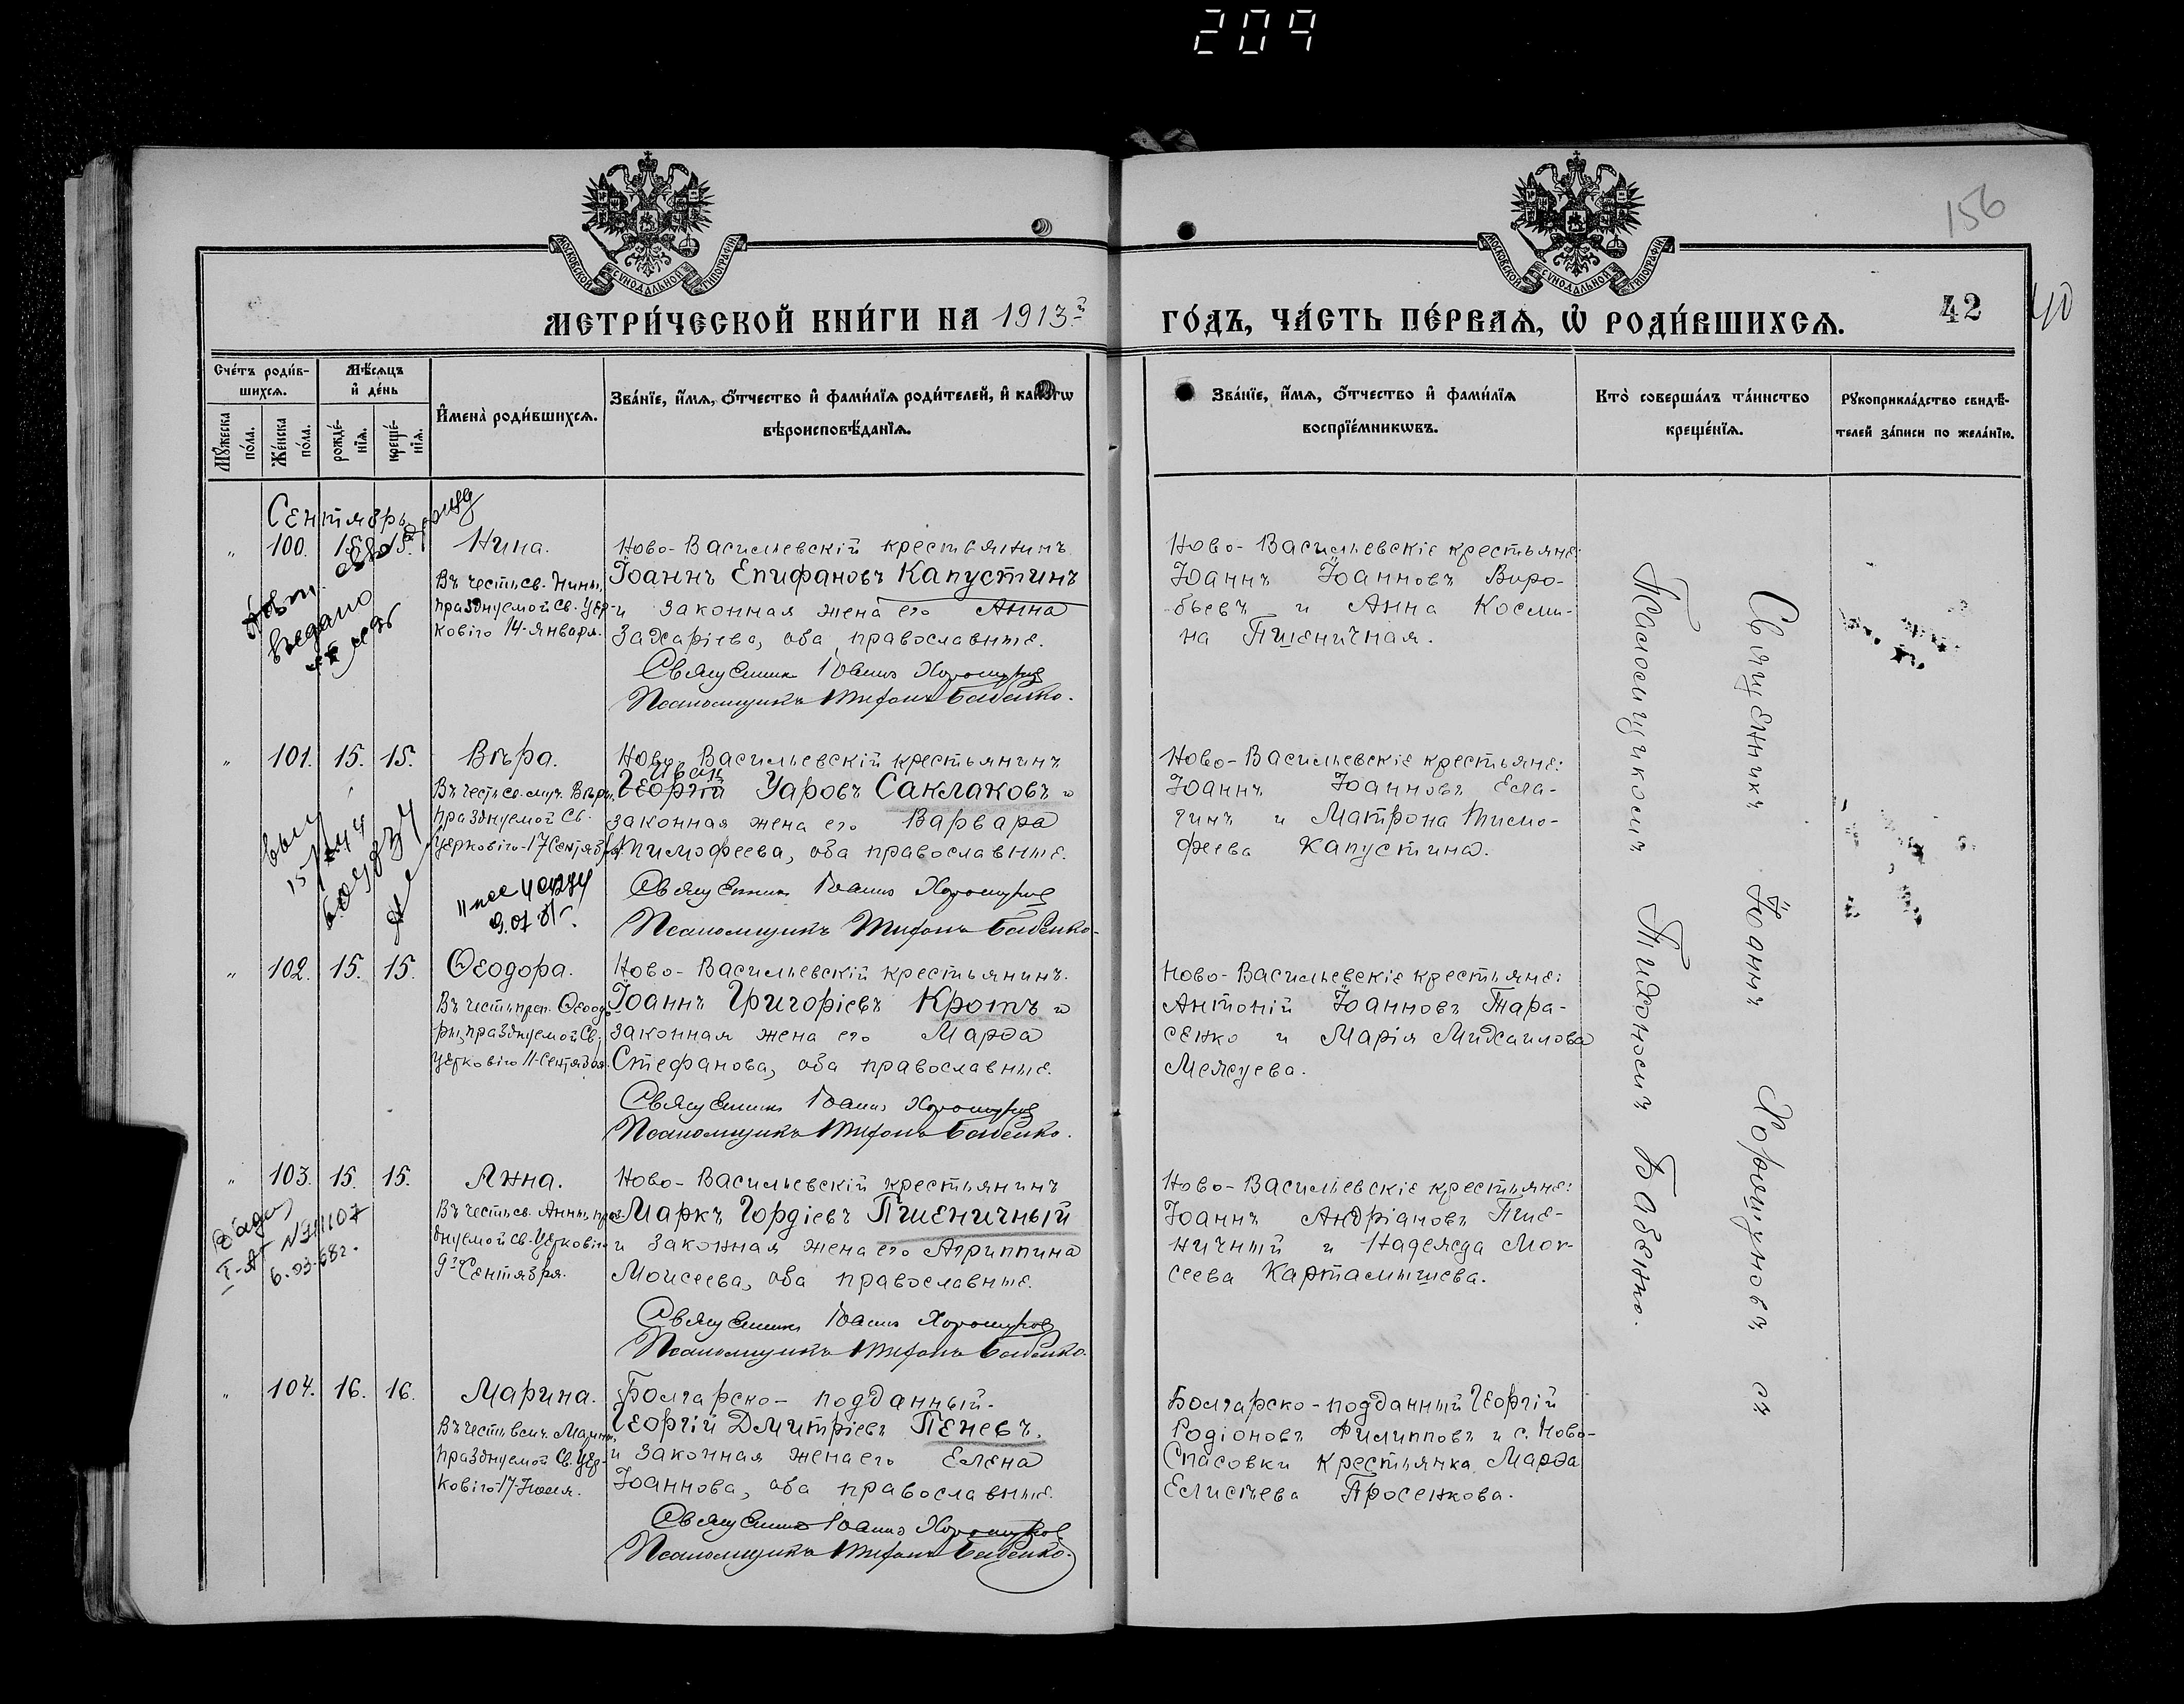 209
156
МОСКОВСКОЙ СѴНОДАЛЬНОЙ ТИПОГРАФІИ
МОСКОВСКОЙ СѴНОДАЛЬНОЙ ТИПОГРАФІИ
МЕТРИ́ЧЕСКОЙ КНИ́ГИ НА 1913 г.
ГО́ДЪ, ЧА́СТЬ ПЕ́РВАѦ, Ѡ҆ РОДИ́ВШИХСѦ.
42
40
Счéтъ роди́в-
шихсѧ.
Мꙋ́жеска
по́ла.
Же́нска
по́ла.
Мѣ́сѧцъ
и҆ де́нь
рожде́-
нїѧ.
креще́-
нїѧ.
И҆мена̀ роди́вшихсѧ.
Зва́нїе, и҆́мѧ, ѻ҆́тчество и҆ фами́лїѧ роди́телей, и҆ какогѡ
вѣроисповѣ́данїѧ.
Зва́нїе, и҆́мѧ, ѻ҆́тчество и҆ фами́лїѧ
воспрїе́мникѡвъ.
Кто̀ соверша́лъ та́инство
креще́нїѧ.
Рꙋкоприкла́дство свидѣ́-
телей за́писи по жела́нїю.
Сентябрь
" 100. 15. 15.
Нина.
Въ честь св. Нины,
празднуемой св. Цер-
ковію 14-января.
Ново-Васильевскій крестьянинъ
Іоаннъ Епифановъ Капустинъ
и законная жена его Анна
Захаріева, оба православные.
Священникъ Іоаннъ Хорошуновъ
Псаломщикъ Тихонъ Бабенко.
Ново-Васильевскіе крестьяне:
Іоаннъ Іоанновъ Воро-
бьевъ и Анна Косми-
на Пшеничная.
выдано
" 101. 15. 15.
Вѣра.
Въ честь св. муч. Вѣры,
празднуемой Св.
Церковію-17 Сентября.
Ново-Васильевскій крестьянинъ
Иван
Георгій Уаровъ Саклаковъ и
законная жена его Варвара
Тимофеева, оба православные.
Священникъ Іоаннъ Хорошуновъ
Псаломщикъ Тихонъ Бабенко.
Ново-Васильевскіе крестьяне:
Іоаннъ Іоанновъ Ела-
гинъ и Матрона Тимо-
феева Капустина.
" 102. 15. 15.
Ѳеодора.
Въ честь преп. Ѳеодо-
ры, празднуемой Св.
Церковію 11-Сентября.
Ново-Васильевскій крестьянинъ.
Іоаннъ Григоріевъ Кротъ и
законная жена его Марѳа
Стефанова, оба православные.
Священникъ Іоаннъ Хорошуновъ
Псаломщикъ Тихонъ Бабенко.
Ново-Васильевскіе крестьяне:
Антоній Іоанновъ Тара-
сенко и Марія Михаилова
" 103. 15. 15.
Анна.
Въ честь св. Анны, праз-
днуемой св. Церковію
9го Сентября.
6.03.68г.
Ново-Васильевскій крестьянинъ
Маркъ Гордіевъ Пшеничный
и законная жена его Агриппина
Моисеева, оба православные.
Священникъ Іоаннъ Хорошуновъ
Псаломщикъ Тихонъ Бабенко.
Ново-Васильевскіе крестьяне:
Іоаннъ Андріановъ Пше-
ничный и Надежда Мои-
сеева Картамышева.
" 104. 16. 16.
Марина.
Въ честь велич. Марины,
празднуемой Св. Цер-
ковію-17-Іюля.
Болгарско-подданный.
Георгій Дмитріевъ Пеневъ.
и законная жена его Елена
Іоаннова, оба православные.
Священникъ Іоаннъ Хорошуновъ
Псаломщикъ Тихонъ Бабенко.
Болгарско-подданный Георгій
Родіоновъ Филипповъ и с. Ново-
Спасовки крестьянка Марѳа
Елисѣева Просенкова.
Священникъ Іоаннъ Хорошуновъ съ
Псаломщикомъ Тихономъ Бабенко.